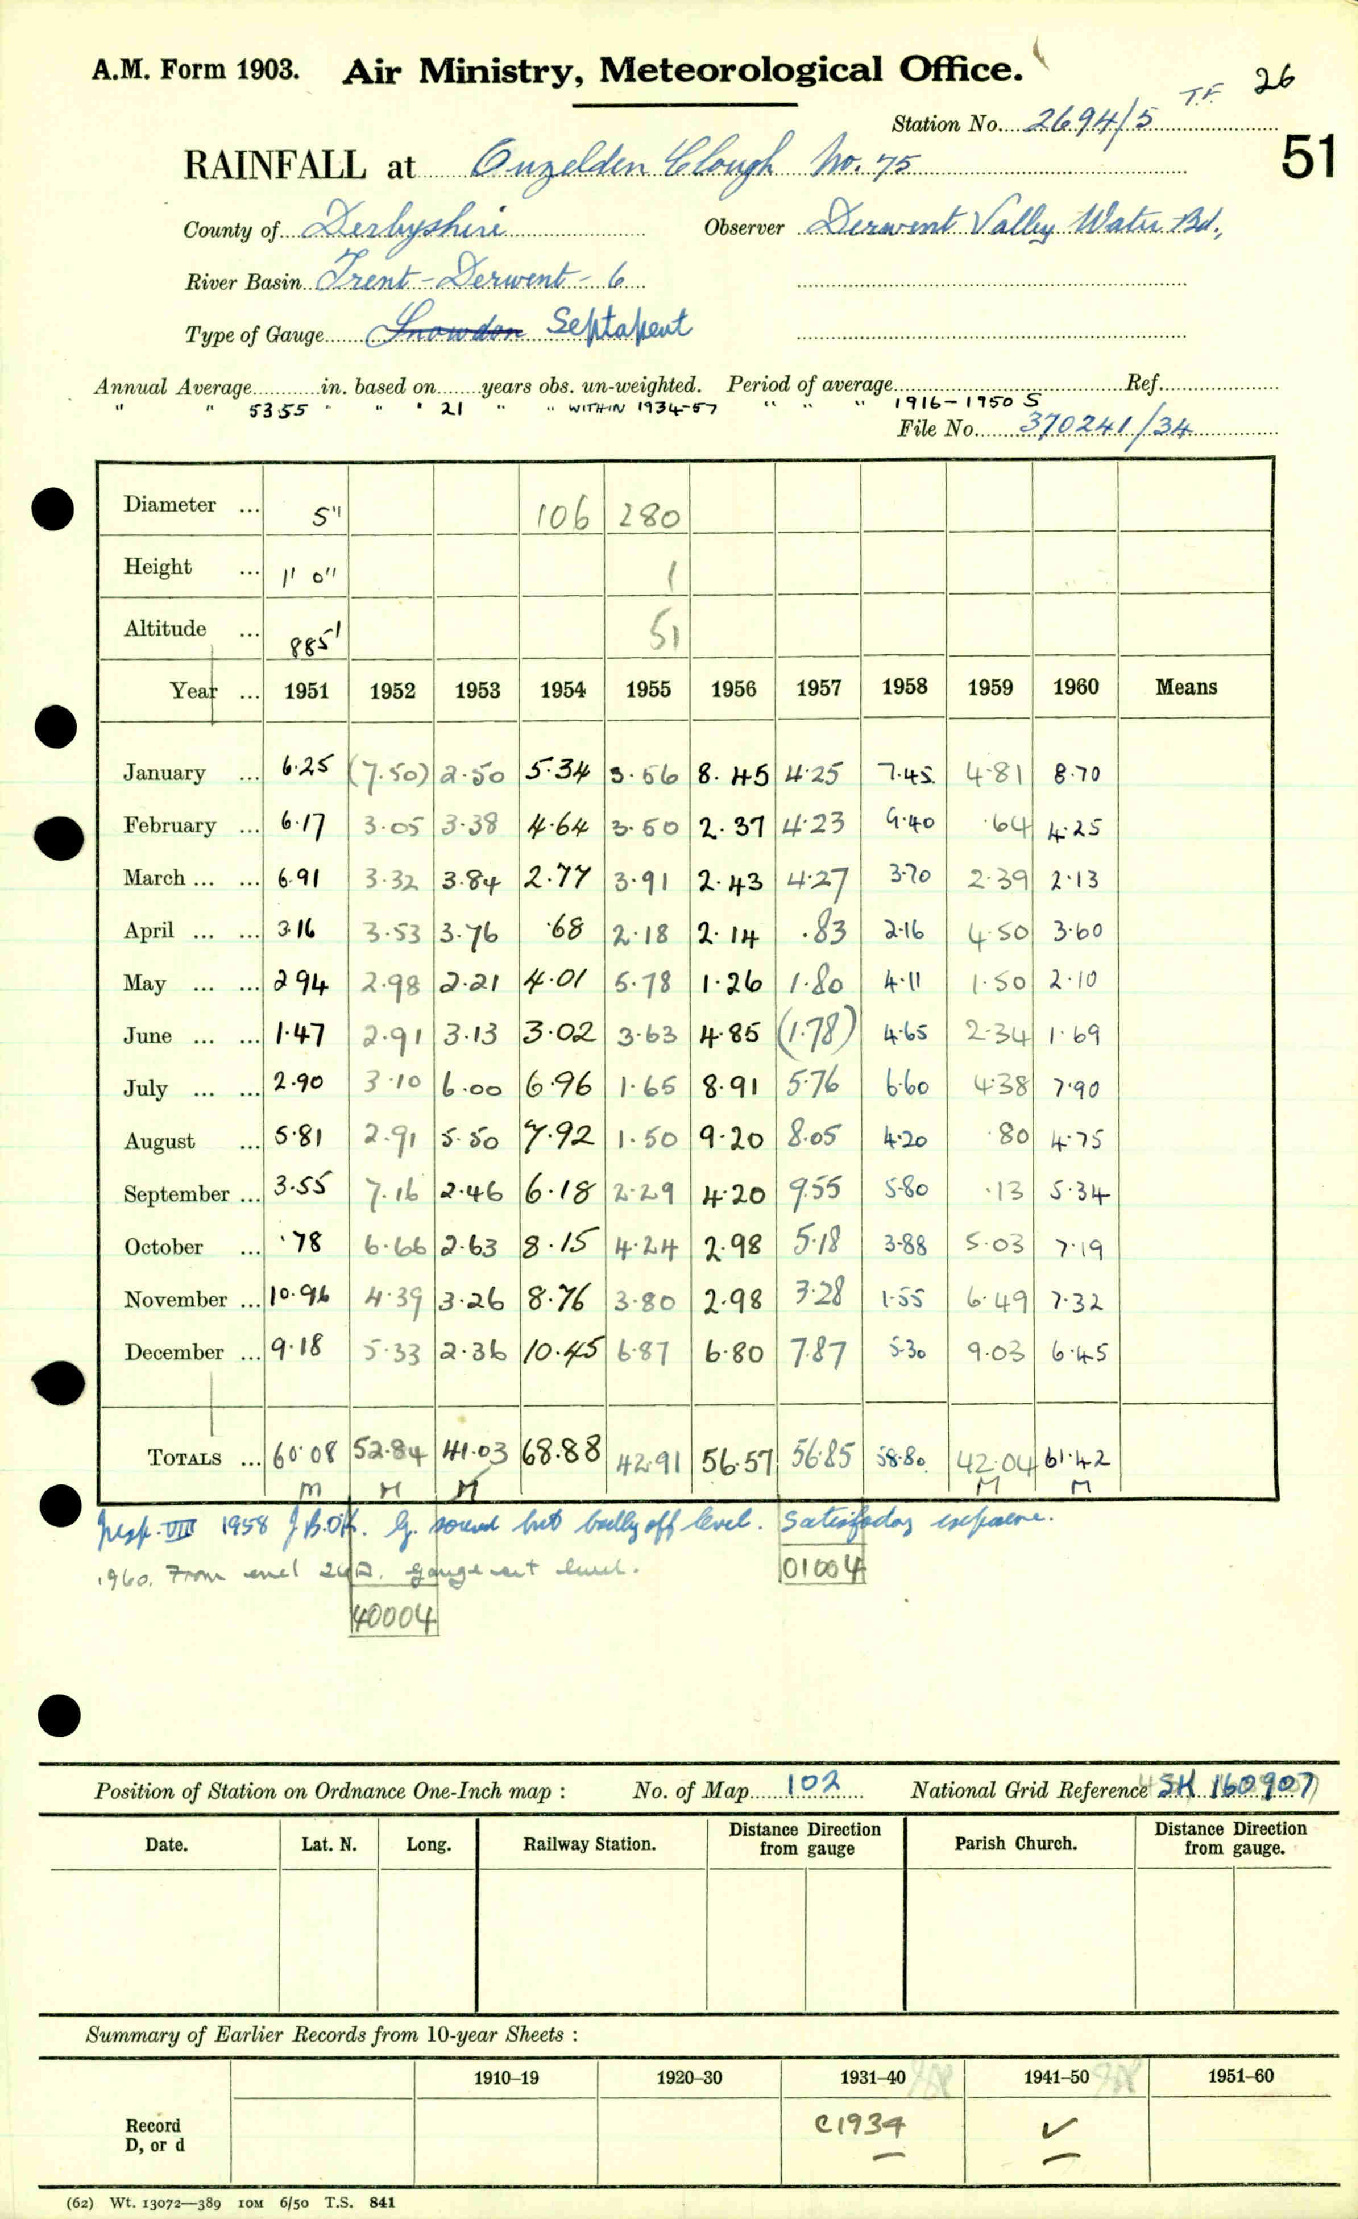 A.M. Form 1903. Air Ministry, Meteorological Office.
T.F. 26
Station No. 2694/5
51
RAINFALL at Ouzelden Clough No. 75
County of Derbyshire Observer Derwent Valley Water Bd.,
River Basin Trent - Derwent - 6
Type of Gauge Snowdon Septapent
Annual Average in. based on years obs. un-weighted. Period of average Ref.
" " 53.55 " " " 21 " " WITHIN 1934-57 " " " 1916-1950 S
File No. 370241/34
Diameter ... 5" 106 280
Height ... 1' 0" 1
Altitude ... 885' 51
Year ... 1951 1952 1953 1954 1955 1956 1957 1958 1959 1960 Means
January ... 6.25 (7.50) 2.50 5.34 3.56 8.45 4.25 7.45 4.81 8.70
February ... 6.17 3.05 3.38 4.64 3.50 2.37 4.23 9.40 .64 4.25
March ... ... 6.91 3.32 3.84 2.77 3.91 2.43 4.27 3.70 2.39 2.13
April ... ... 3.16 3.53 3.76 .68 2.18 2.14 .83 2.16 4.50 3.60
May ... ... 2.94 2.98 2.21 4.01 5.78 1.26 1.80 4.11 1.50 2.10
June ... ... 1.47 2.91 3.13 3.02 3.63 4.85 (1.78) 4.65 2.34 1.69
July ... ... 2.90 3.10 6.00 6.96 1.65 8.91 5.76 6.60 4.38 7.90
August ... 5.81 2.91 5.50 7.92 1.50 9.20 8.05 4.20 .80 4.75
September ... 3.55 7.16 2.46 6.18 2.29 4.20 9.55 5.80 .13 5.34
October ... .78 6.66 2.63 8.15 4.24 2.98 5.18 3.88 5.03 7.19
November ... 10.96 4.39 3.26 8.76 3.80 2.98 3.28 1.55 6.49 7.32
December ... 9.18 5.33 2.36 10.45 6.87 6.80 7.87 5.30 9.03 6.45
TOTALS ... 60.08 52.84 41.03 68.88 42.91 56.57 56.85 58.80 42.04 61.42
M M M M M
Insp. VIII 1958 G. sound but badly off level. Satisfactory exposure.
1960. From encl 24A. gauge set level.
01004
40004
Position of Station on Ordnance One-Inch map : No. of Map 102 National Grid Reference SK 160907
Date. Lat. N. Long. Railway Station. Distance Direction from gauge Parish Church. Distance Direction from gauge.
Summary of Earlier Records from 10-year Sheets :
1910–19 1920–30 1931–40 1941–50 1951–60
Record D, or d C1934 ✓
(62) Wt. 13072—389 10M 6/50 T.S. 841